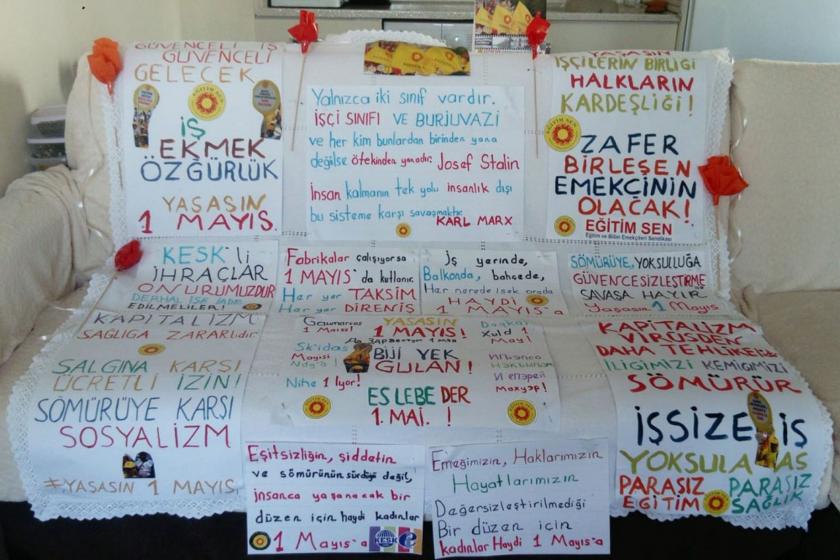 GÜVENCELİ İŞ
GÜVENCELİ
GELECEK
İŞ
EKMEK
ÖZGÜRLÜK
YAŞASIN
1 MAYIS.
Yalnızca iki sınıf vardır.
İŞÇİ SINIFI VE BURJUVAZİ
ve her kim bunlardan birinden yana
değilse ötekinden yanadır. Josef Stalin
İnsan kalmanın tek yolu insanlık dışı
bu sisteme karşı savaşmaktır.
KARL MARX
YAŞASIN
İŞÇİLERİN BİRLİĞİ
HALKLARIN
KARDEŞLİĞİ!
EĞİTİM SEN
ZAFER
BİRLEŞEN
EMEKÇİNİN
OLACAK!
EĞİTİM SEN
Eğitim ve Bilim Emekçileri Sendikası
KESK'li
İHRAÇLAR
ONURUMUZDUR
DERHAL İŞE İADE
EDİLMELİLER!
Fabrikalar çalışıyorsa
1 MAYIS'da kutlanır.
Her yer TAKSİM
Her yer DİRENİŞ
İş yerinde,
Balkonda, bahçede,
Her nerede isek orada
HAYDİ 1 MAYIS'a
SÖMÜRÜYE, YOKSULLUĞA
GÜVENCESİZLEŞTİRME
SAVAŞA HAYIR
Yaşasın 1 Mayıs
KAPİTALİZM
SAĞLIĞA ZARARLIdır.
SALGINA KARŞI
ÜCRETLİ İZİN!
SÖMÜRÜYE KARŞI
SOSYALİZM
#YAŞASIN 1 MAYIS.
YAŞASIN
1 MAYIS!
BİJİ YEK
GULAN!
Nihe 1 İyor!
ES LEBE DER
1. MAİ. !
KAPİTALİZM
VİRÜSDEN
DAHA TEHLİKELİ
İLİĞİMİZİ KEMİĞİMİZİ
SÖMÜRÜR
İŞSİZE İŞ
YOKSULA AŞ
PARASIZ EĞİTİM
PARASIZ SAĞLIK
Eşitsizliğin, şiddetin
ve sömürünün sürdüğü değil,
insanca yaşanacak bir
düzen için haydi kadınlar
1 Mayıs'a
KESK
Emeğimizin, Haklarımızın
Hayatlarımızın
Değersizleştirilmediği
Bir düzen için
kadınlar Haydi 1 Mayıs'a